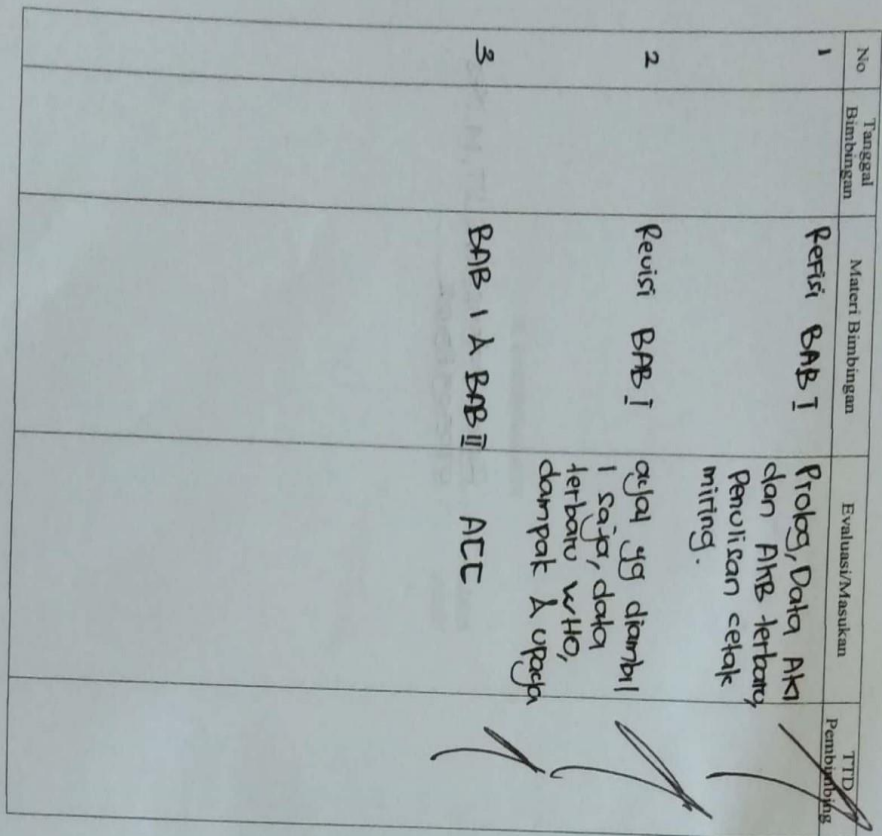 No
Tanggal
Bimbingan
Materi Bimbingan
Evaluasi/Masukan
TTD
Pembimbing
1
Refisi BAB I
Prolog, Data AKI
dan AKB terbaru,
Penulisan cetak
miring.
2
Revisi BAB I
yg diambil
1 saja, data
terbaru WHO,
dampak & upaya
3
BAB I & BAB II
ACC